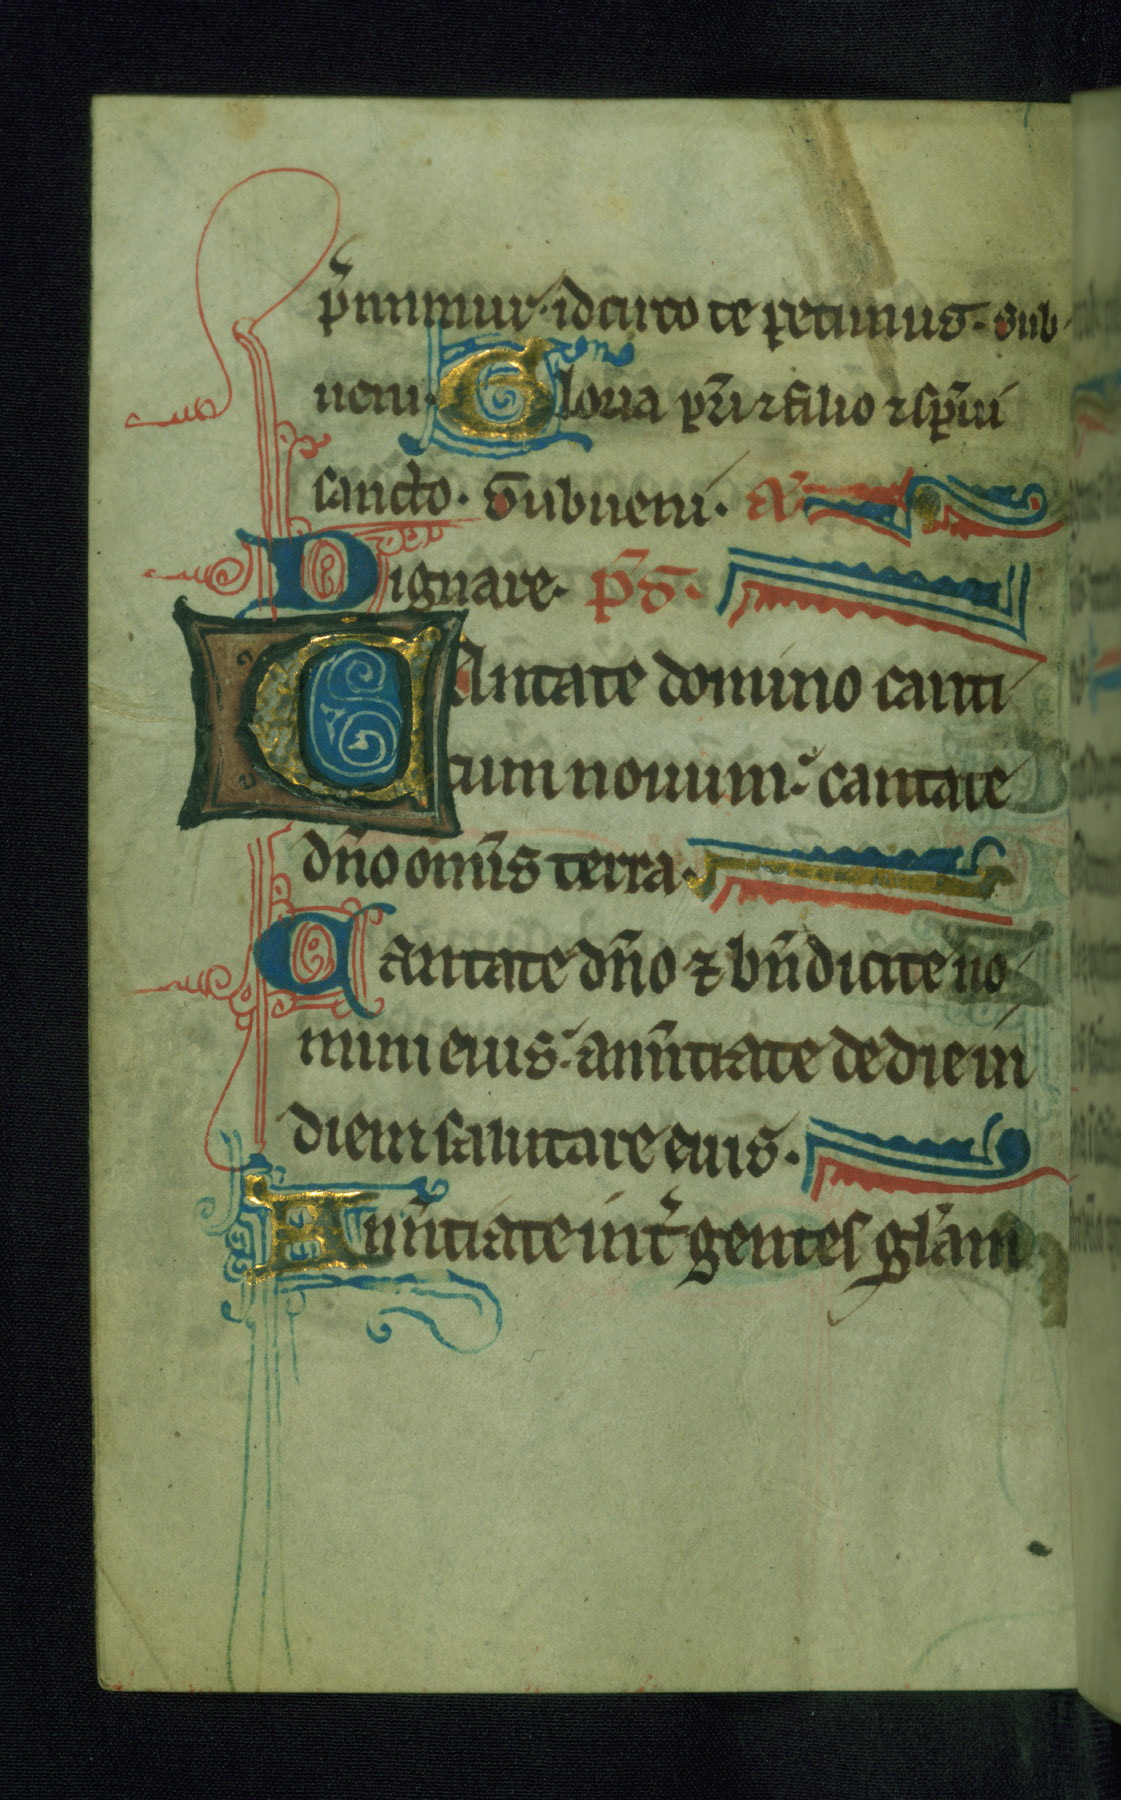 p̄mimur· idcirco te petimus· Sub
ueni· Gloria pr̄i ⁊ filio ⁊ sp̄ui
sancto· Subueni· a͞·
Dignare· p̄s·
CAntate domino canti
cum nouum: cantate
dn̄o omīs terra·
Cantate dn̄o ⁊ bn̄dicite no
mini eius: anūtiate de die in
diem salutare eius·
Anūtiate int̄ gentes glām